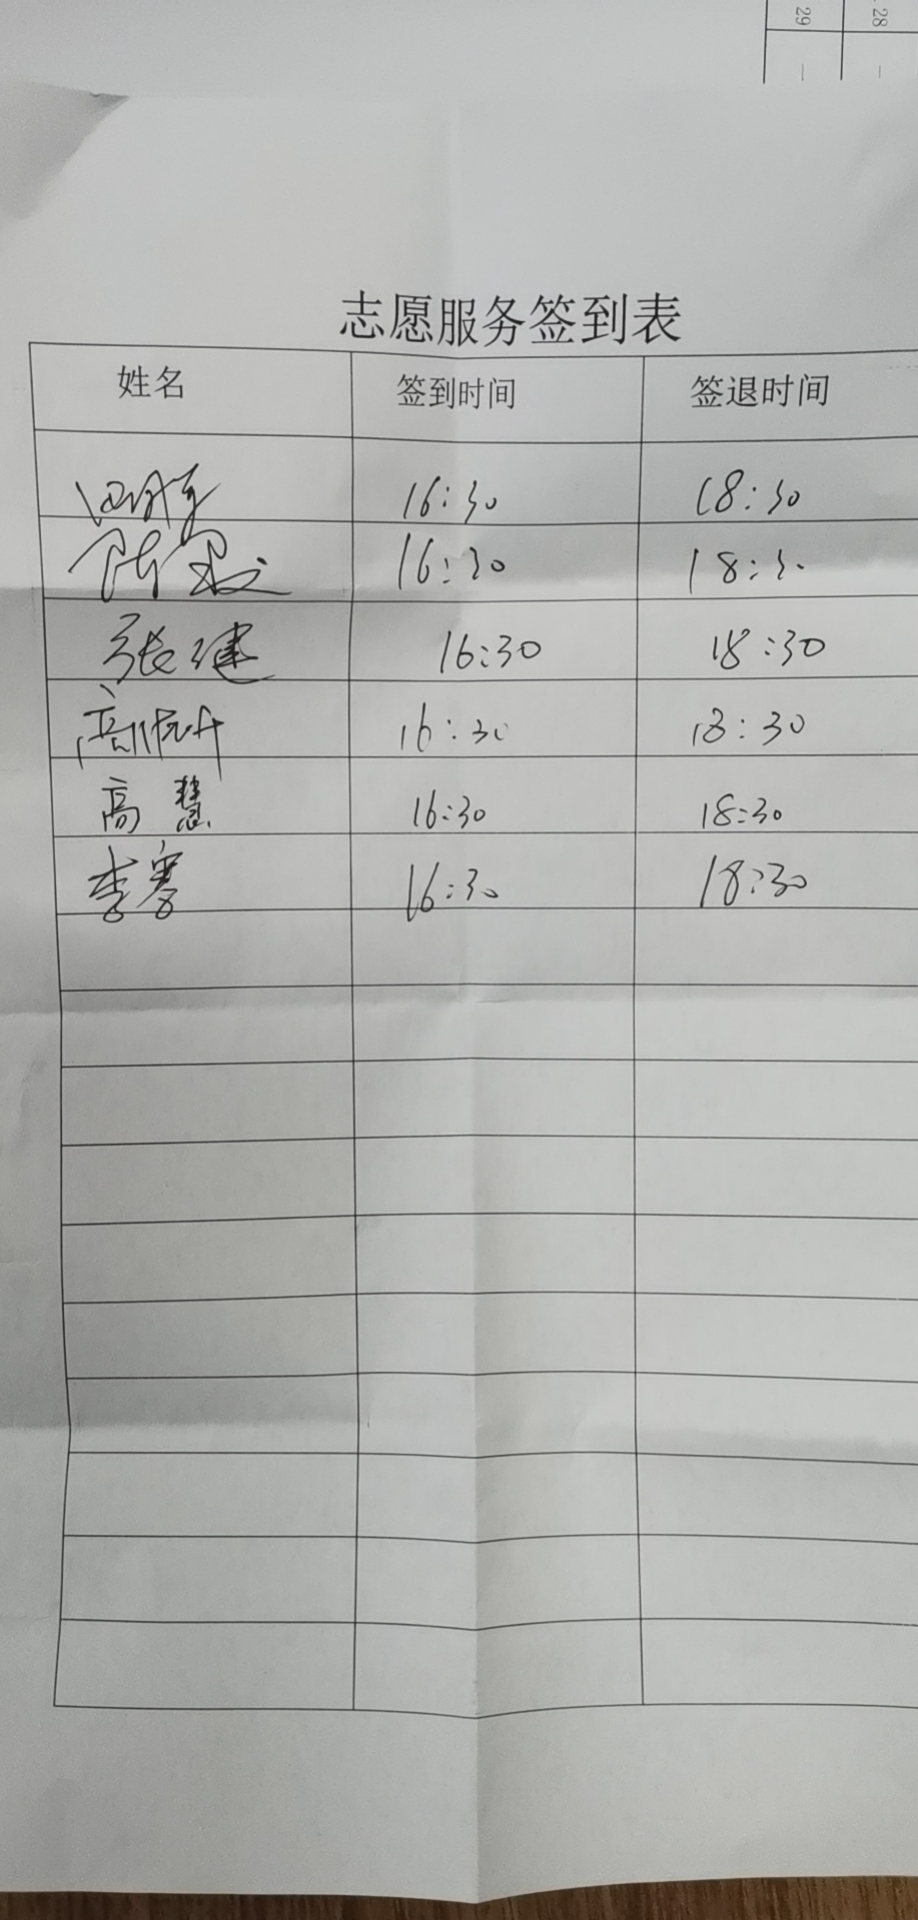 28
29
志愿服务签到表
姓名 签到时间 签退时间
16:30 18:30
16:30 18:30
张健 16:30 18:30
高 16:30 18:30
高慧 16:30 18:30
李 16:30 18:30